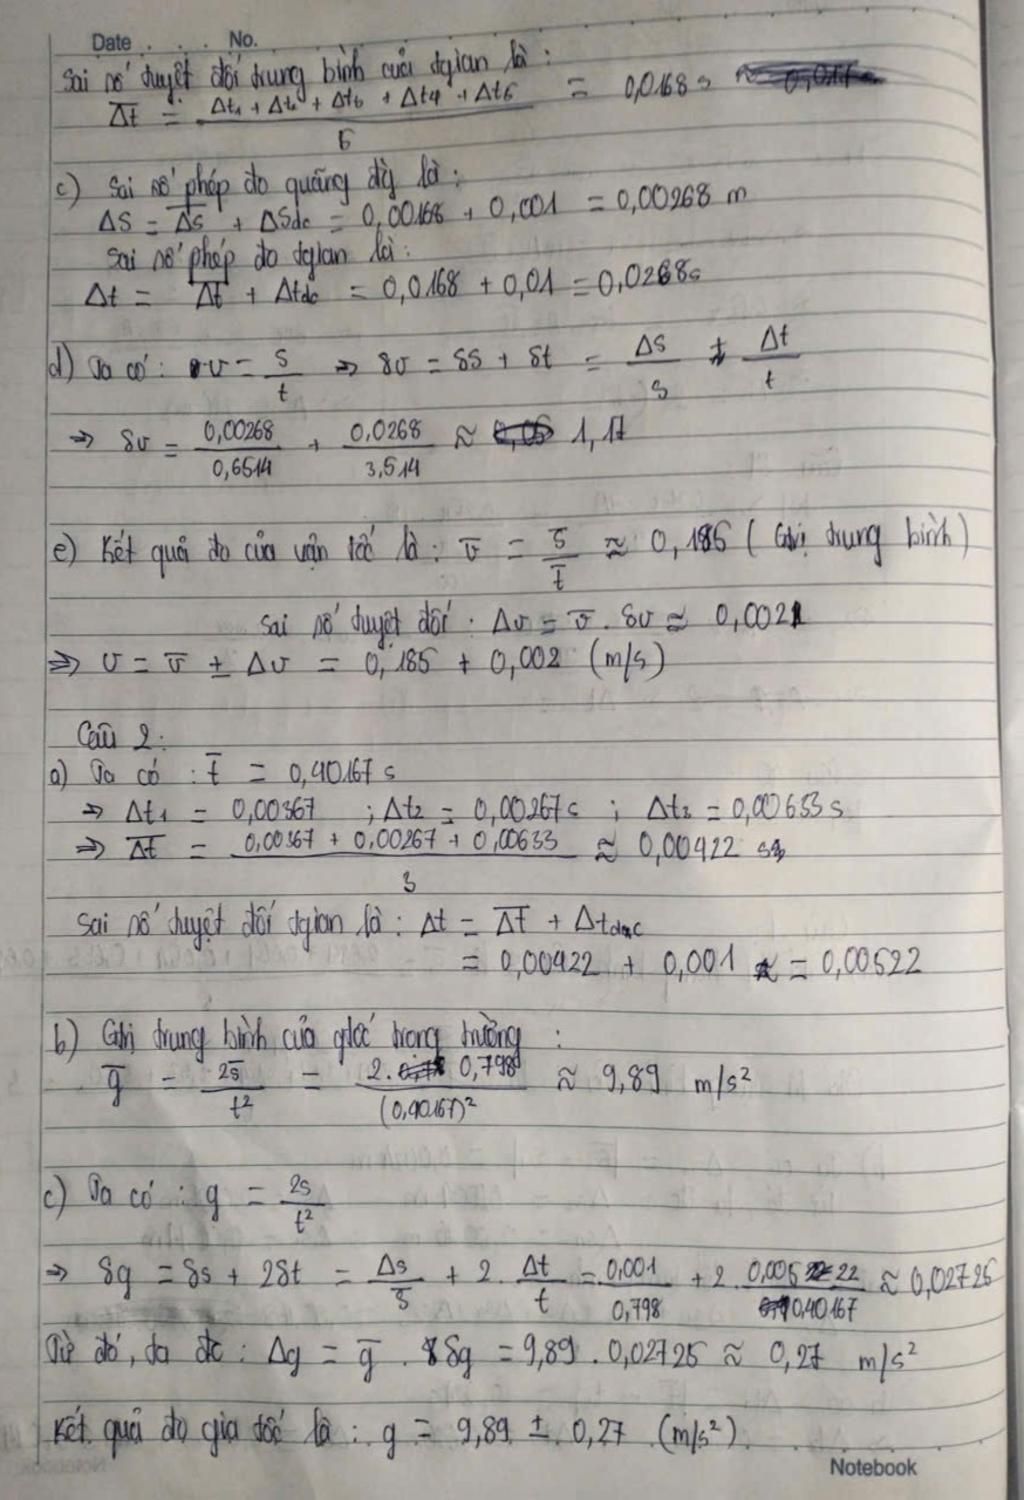 Date . . . . No.
Sai số tuyệt đối trung bình của tgian là :
Δt̅ = (Δt₁ + Δt₂ + Δt₃ + Δt₄ + Δt₅) / 5 = 0,0168 s ≈
c) Sai số phép đo quãng đg là :
ΔS = Δs̅ + ΔSdc = 0,00168 + 0,001 = 0,00268 m
Sai số phép đo tgian là :
Δt = Δt̅ + Δtdc = 0,0168 + 0,01 = 0,0268s
d) Ta có : v = s / t => δv = δs + δt = Δs / s + Δt / t
=> δv = 0,00268 / 0,6514 + 0,0268 / 3,514 ≈ 1,17
e) Kết quả đo của vận tốc là : v̅ = s̅ / t̅ ≈ 0,185 ( Gtrị trung bình )
Sai số tuyệt đối : Δv = v̅ . δv ≈ 0,0021
=> v = v̅ ± Δv = 0,185 + 0,002 (m/s)
Câu 2 :
a) Ta có : t̅ = 0,40167 s
=> Δt₁ = 0,00367 ; Δt₂ = 0,00267 s ; Δt₃ = 0,00633 s
=> Δt̅ = (0,00367 + 0,00267 + 0,00633) / 3 ≈ 0,00422 s
Sai số tuyệt đối tgian là : Δt = Δt̅ + Δtdc
= 0,00422 + 0,001 = 0,00522
b) Gtrị trung bình của gtốc trọng trường :
g̅ = 2s̅ / t² = 2. 0,798 / (0,40167)² ≈ 9,89 m/s²
c) Ta có : g = 2s / t²
=> δg = δs + 2δt = Δs / s + 2. Δt / t = 0,001 / 0,798 + 2. 0,00522 / 0,40167 ≈ 0,02725
Từ đó, ta đc : Δg = g̅ . δg = 9,89 . 0,02725 ≈ 0,27 m/s²
Kết quả đo gia tốc là : g = 9,89 ± 0,27 (m/s²)
Notebook